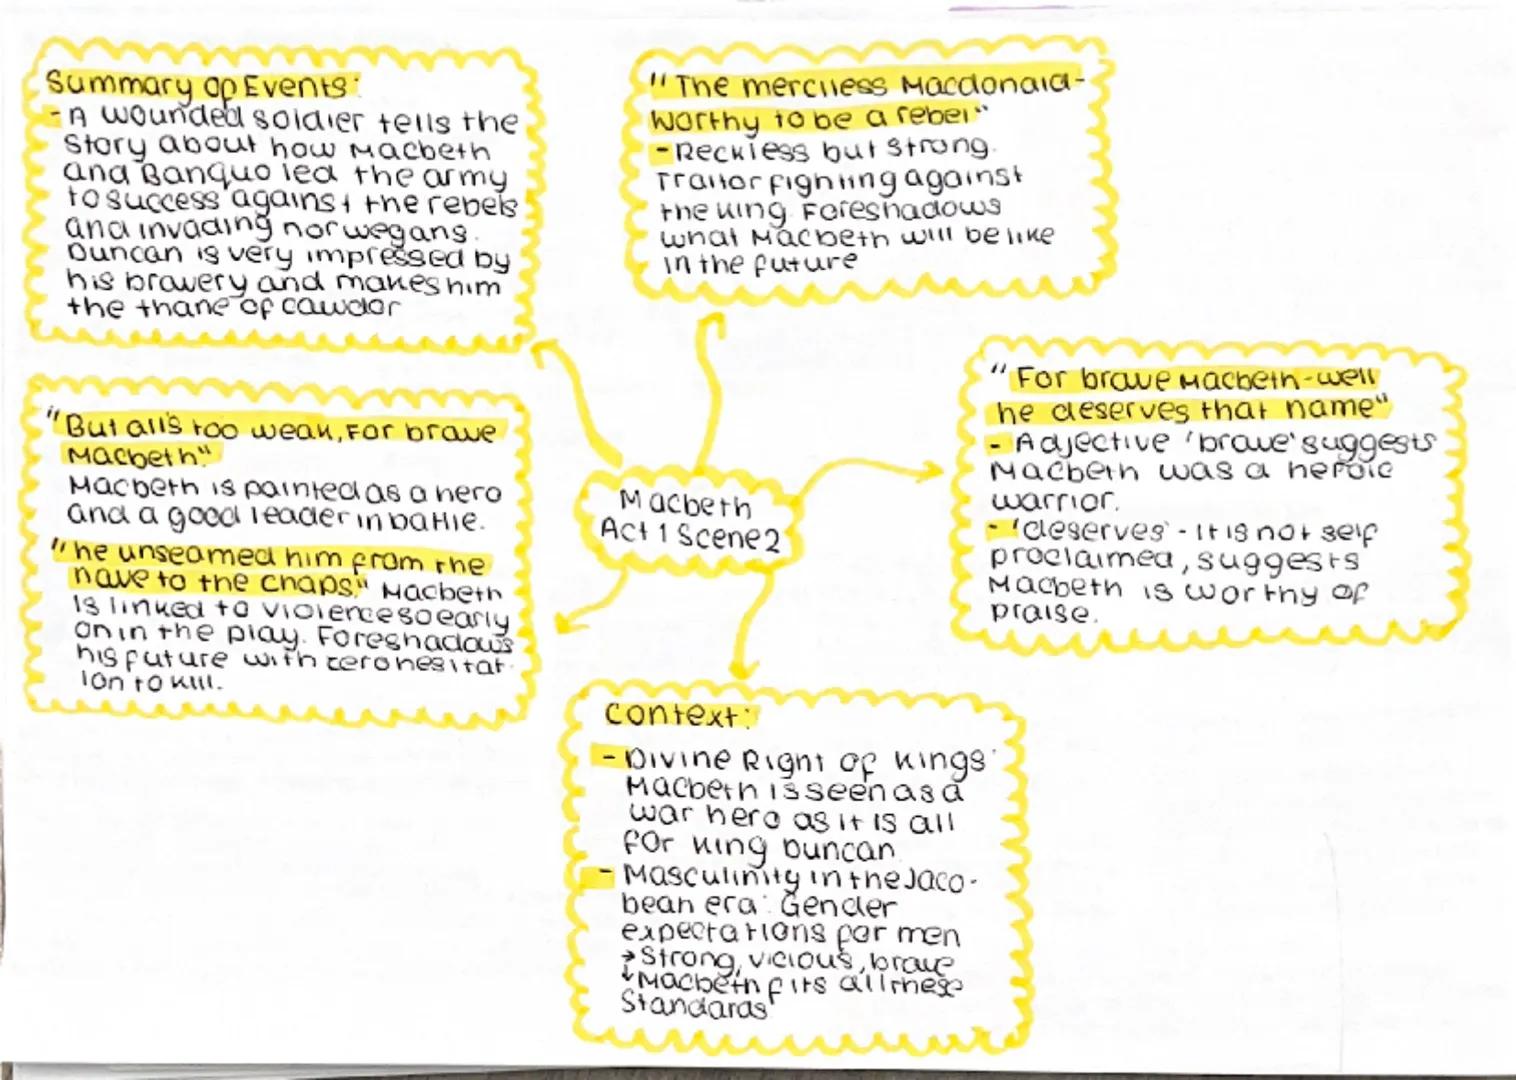 Summary of Events:
- A wounded soldier tells the
story about how Macbeth
and Banquo led the army
to success against the rebels
and invading norwegans.
Duncan is very impressed by
his bravery and makes him
the thane of cawdor
"The merciless Macdonald-
worthy to be a rebel"
- Reckless but strong.
Traitor fighting against
the king. Foreshadows
what Macbeth will be like
in the future
"But all's too weak, For brave
Macbeth"
Macbeth is painted as a hero
and a good leader in battle.
"he unseamed him from the
nave to the chaps." Macbeth
is linked to violence so early
on in the play. Foreshadows
his future with zero hesitat-
ion to kill.
Macbeth
Act 1 Scene 2
"For brave Macbeth-well
he deserves that name"
- Adjective 'brave' suggests
Macbeth was a heroic
warrior.
- 'deserves' - it is not self
proclaimed, suggests
Macbeth is worthy of
praise.
Context:
- Divine Right of Kings:
Macbeth is seen as a
war hero as it is all
for King Duncan
- Masculinity in the Jaco-
bean era: Gender
expectations for men
→ Strong, vicious, brave
↳ Macbeth fits all these
Standards